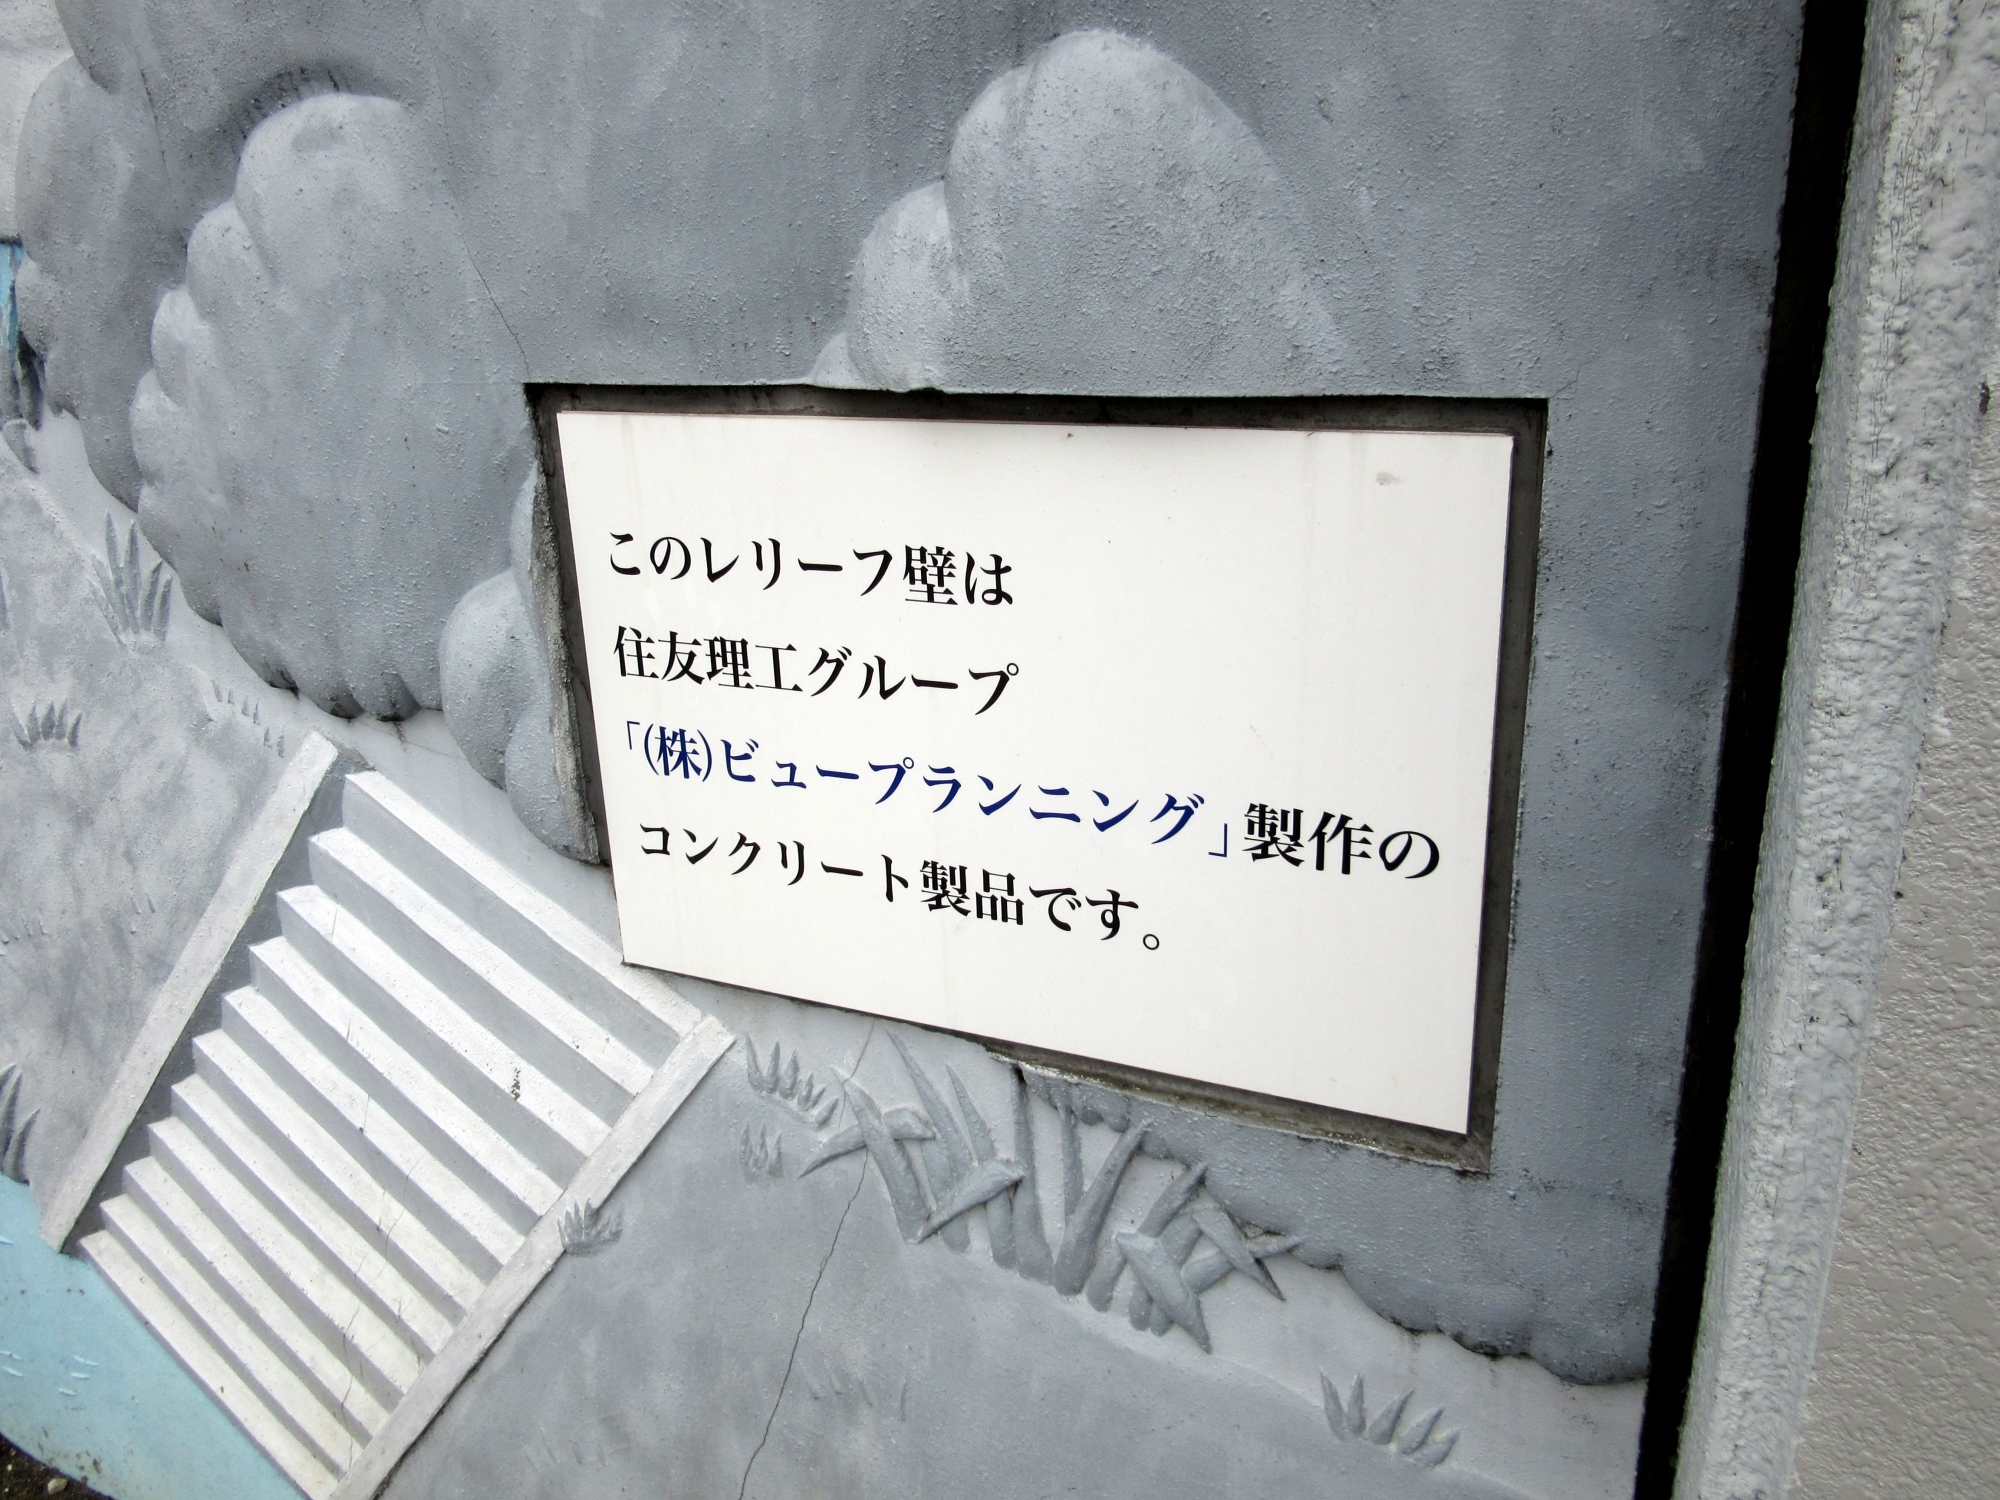 このレリーフ壁は
住友理工グループ
「(株)ビュープランニング」製作の
コンクリート製品です。